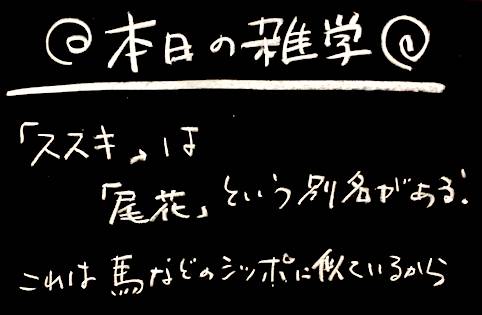 @本日の雑学@
「ススキ」は
「尾花」という別名がある!
これは馬などのシッポに似ているから